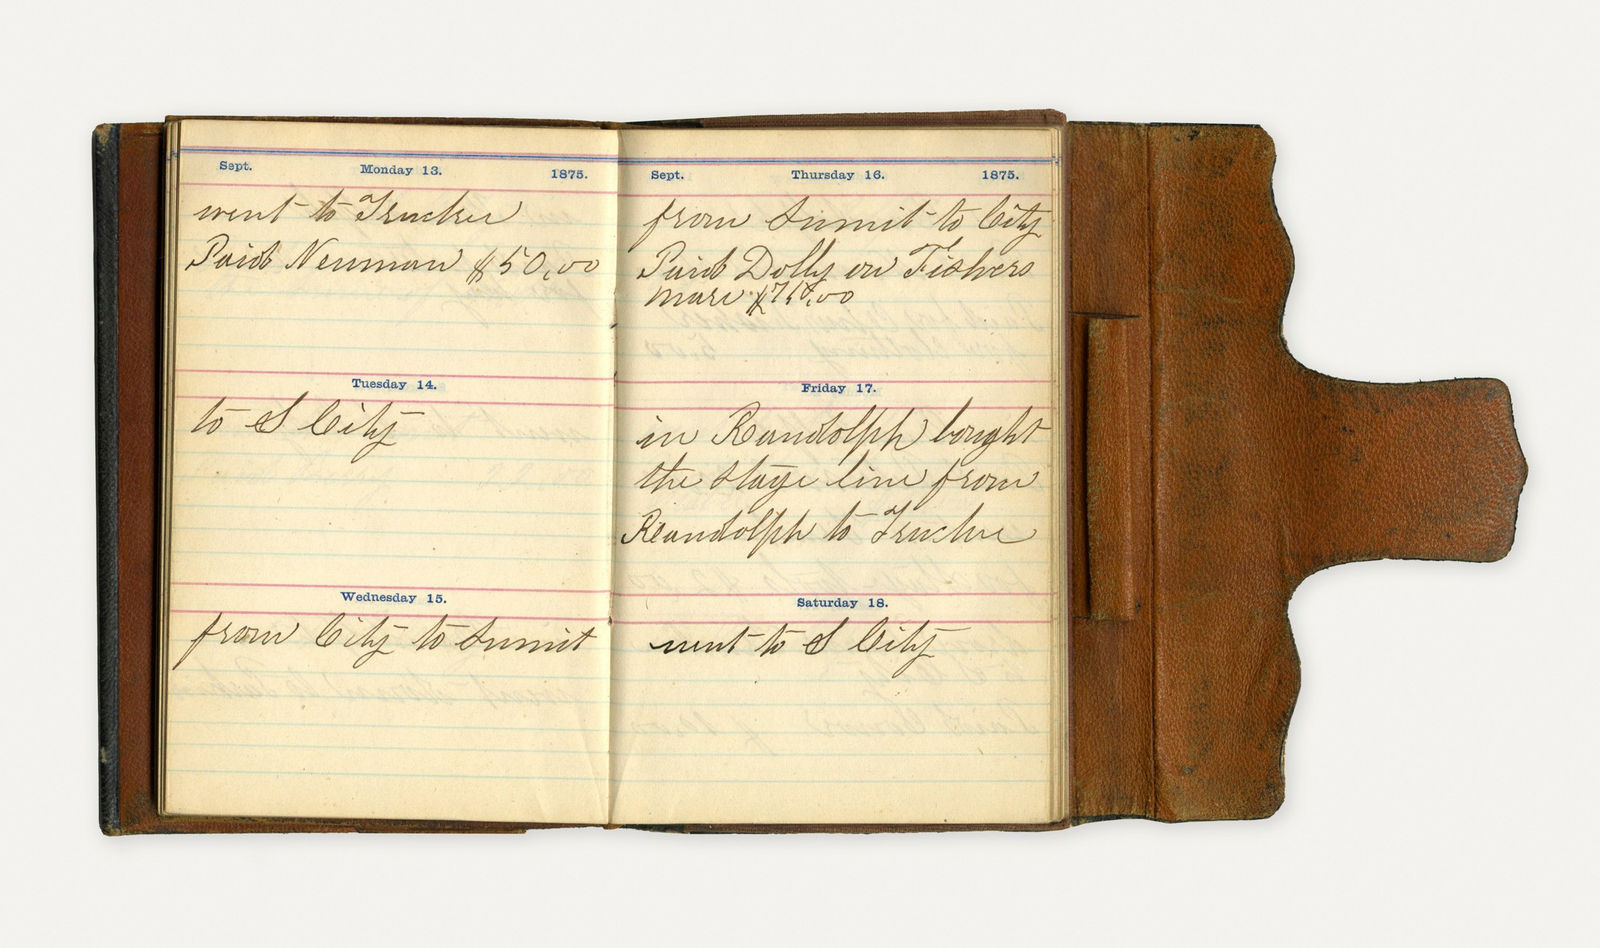 Sept. Monday 13. 1875.
went to Truckee
Paid Newman $50,00
Tuesday 14.
to S City
Wednesday 15.
from City to Summit
Sept. Thursday 16. 1875.
from Summit to City
Paid Dolly on Fishers
mare
Friday 17.
in Randolph bought
the stage line from
Randolph to Truckee
Saturday 18.
went to S City